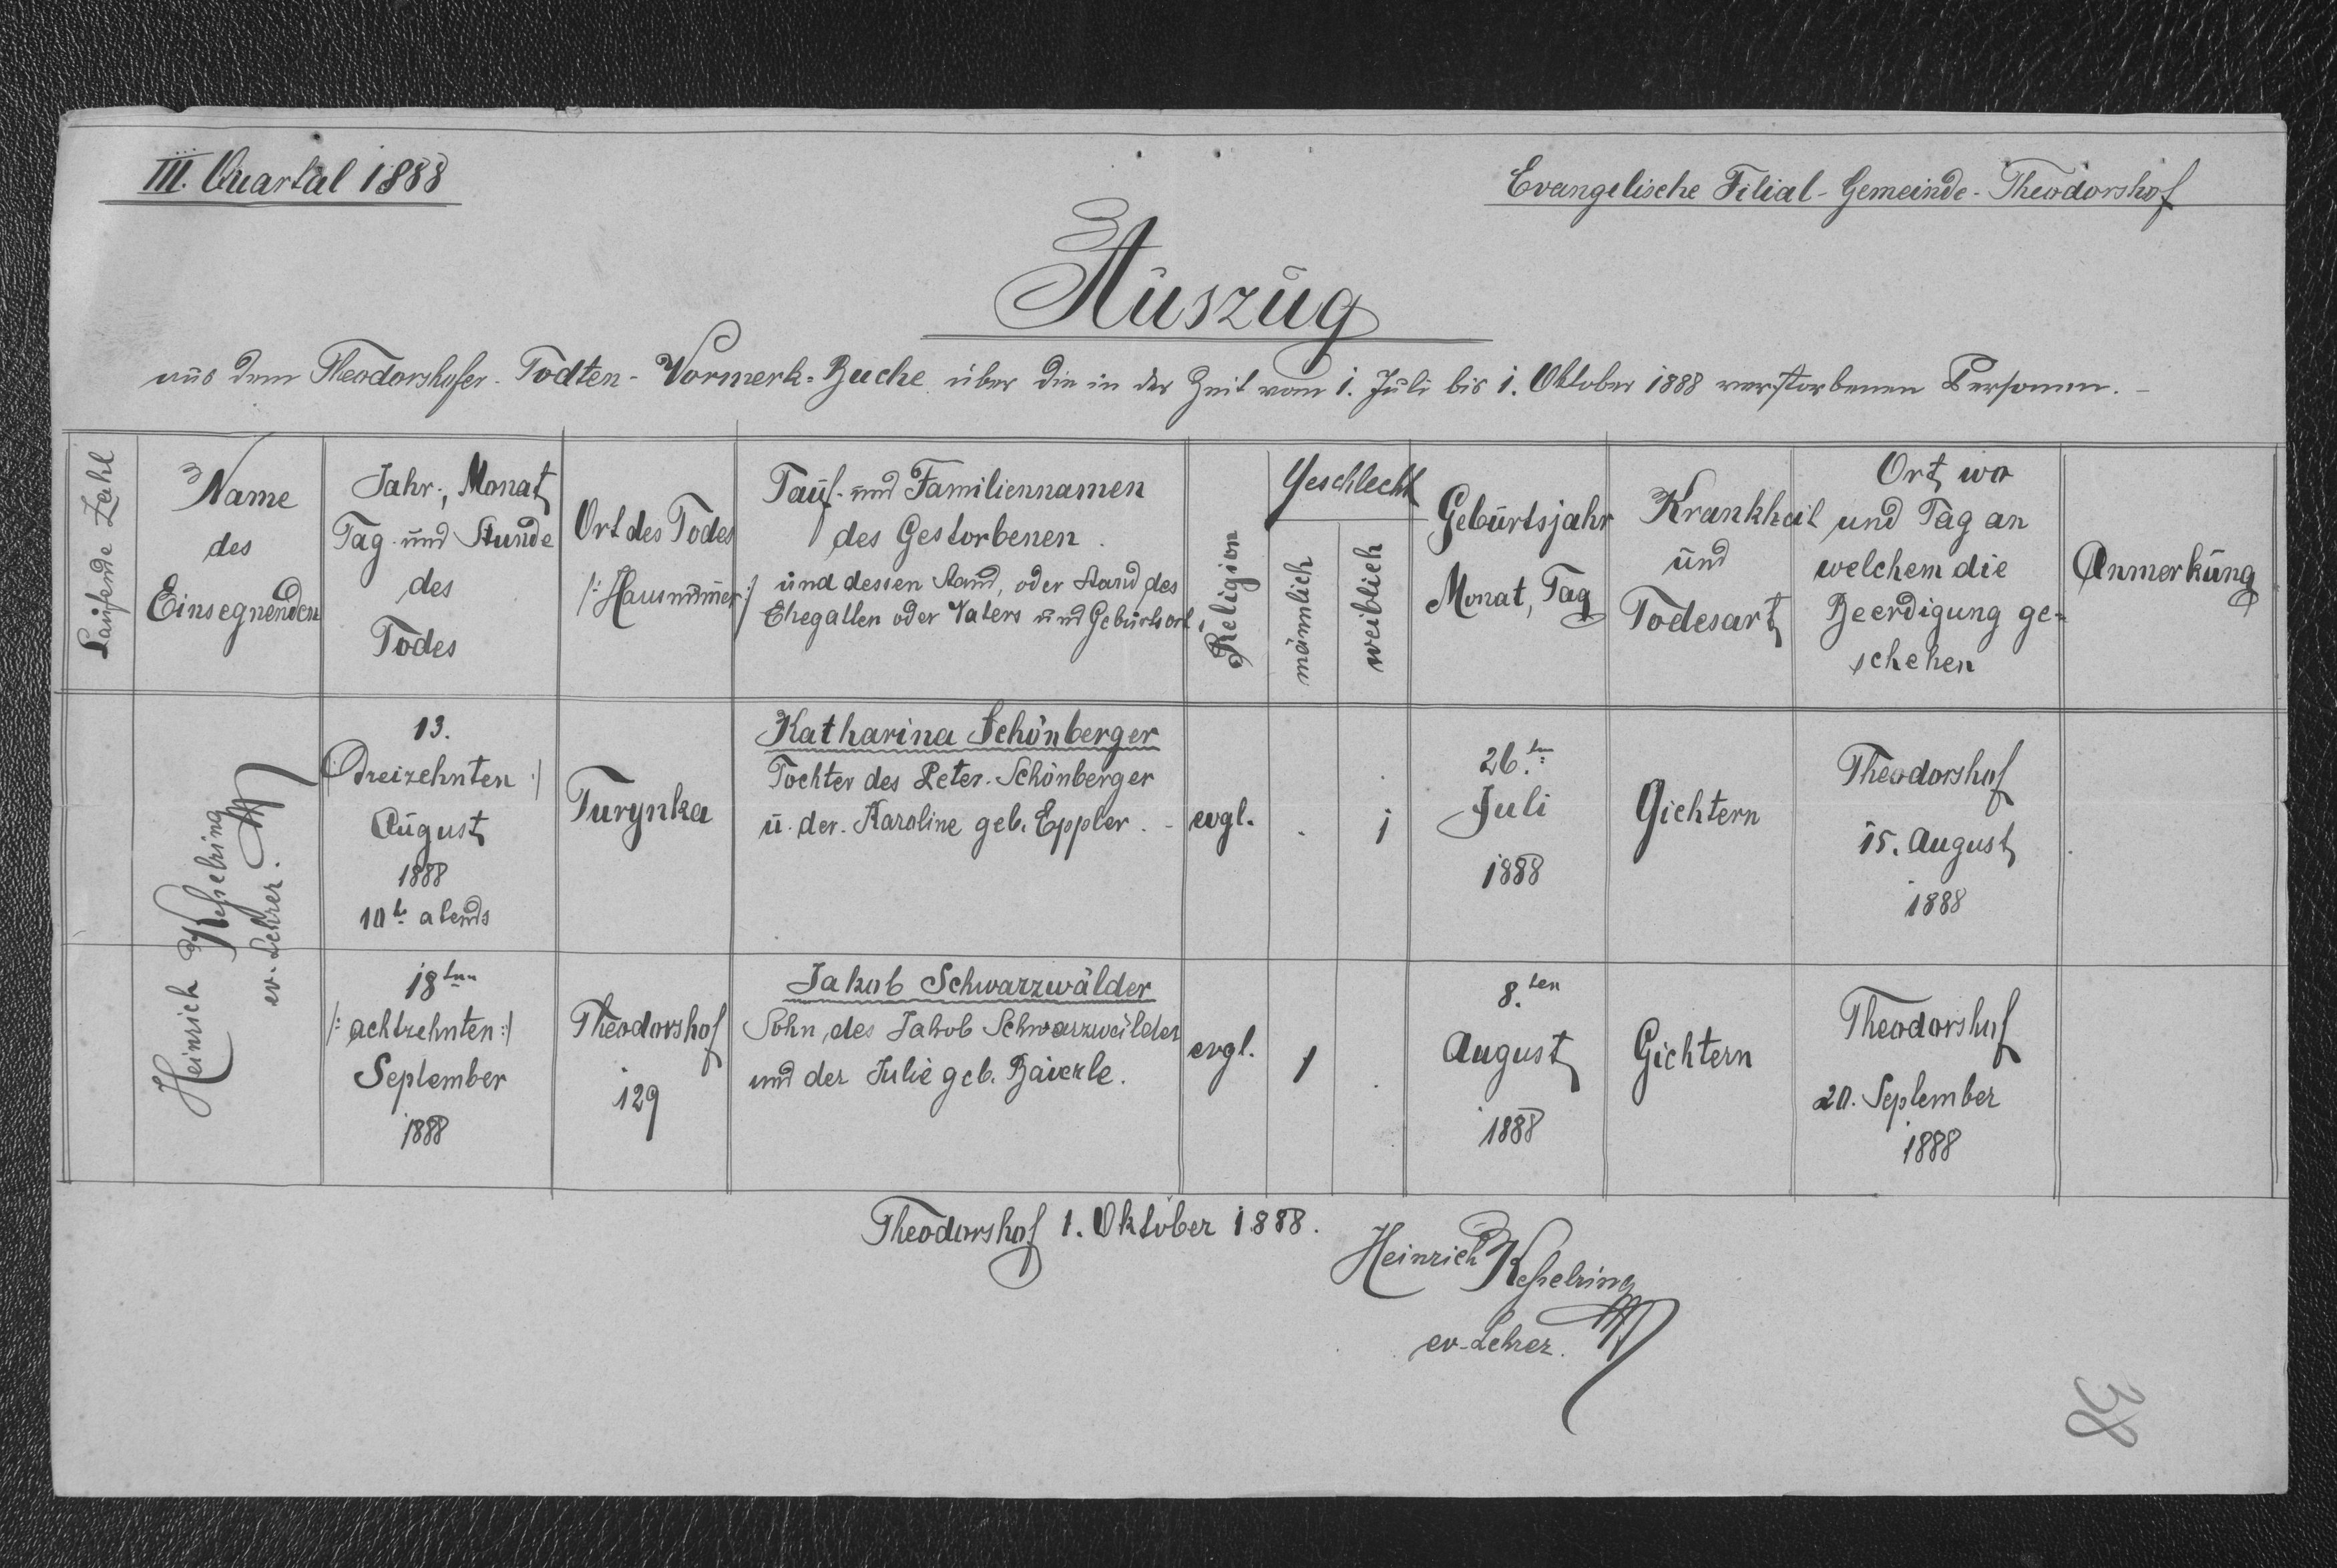 III. Quartal 1888
Evangelische Filial-Gemeinde-Theodorshof
Auszug
aus dem Theodorshofer-Todten-Vormerk-Buche über die in der Zeit vom 1. Juli bis 1. Oktober 1888 verstorbenen Personen.-
Laufende Zahl
Name
des
Einsegnenden
Jahr, Monat
Tag und Stunde
des
Todes
Ort des Todes
/:Hausnum̅er:/
Tauf- und Familiennamen
des Gestorbenen.
und dessen Stand, oder Stand des
Ehegatten oder Vaters und Geburtsort,
Religion
Geschlecht
männlich
weiblich
Geburtsjahr
Monat, Tag
Krankheit
und
Todesart
Ort, wo
und Tag an
welchem die
Beerdigung ge-
schehen
Anmerkung
Heinrich Keßelring
ev. Lehrer.
13.
/:Dreizehnten:/
August
1888
10h abends
Turynka
Katharina Schönberger
Tochter des Peter Schönberger
u. der Karoline geb. Eppler.-
evgl.
.
1
26.ten
Juli
1888
Gichtern
Theodorshof
15. August
1888
18ten
/:achtzehnten:/
September
1888
Theodorshof
129
Jakob Schwarzwälder
Sohn des Jakob Schwarzwälder
und der Julie geb. Bäuerle.
evgl.
1
.
8.ten
August
1888
Gichtern
Theodorshof
20. September
1888
Theodorshof 1. Oktober 1888.
Heinrich Keßelring
ev. Lehrer.
38